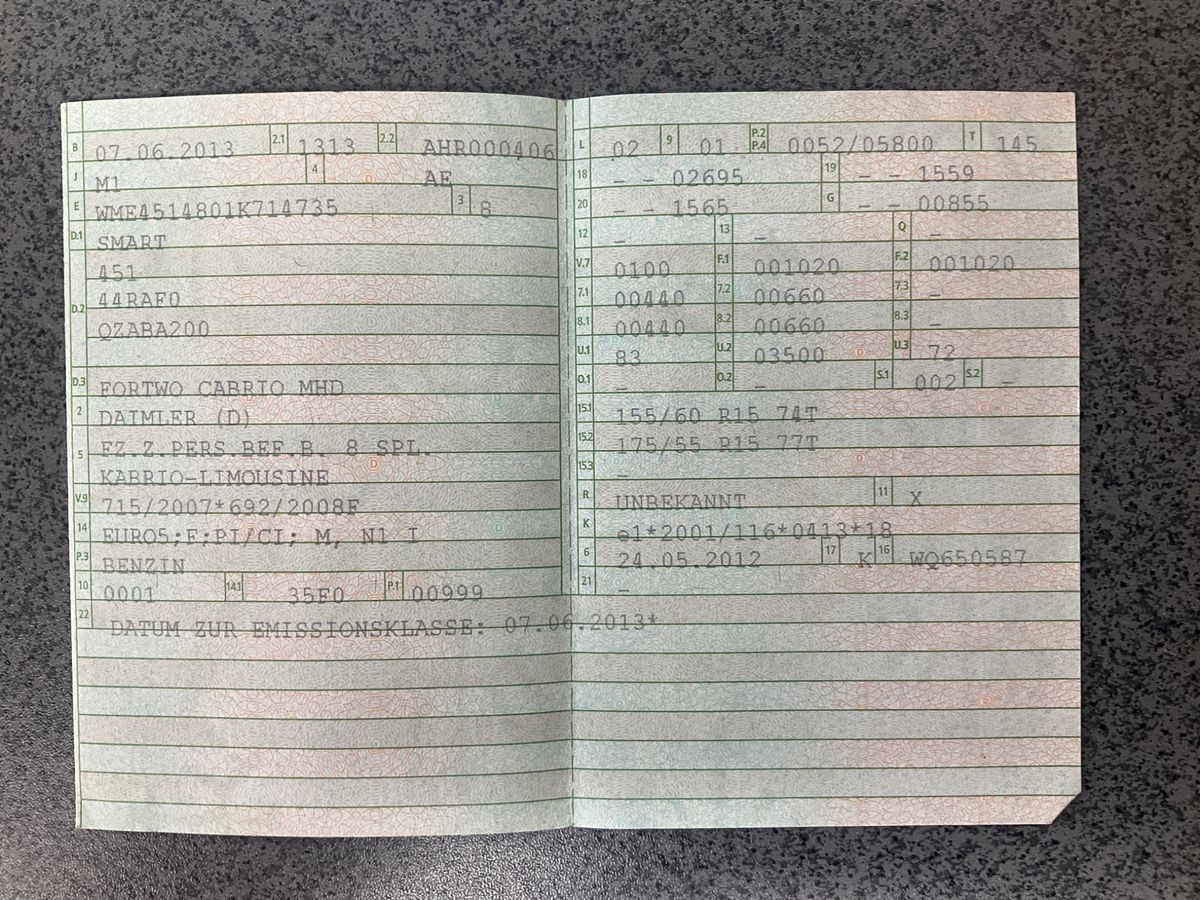 B 07.06.2013 2.1 1313 2.2 AHR000406
J M1 4 AF
E WME4514801K714735 3 8
D.1 SMART
451
D.2 44RAF0
QZABA200
D.3 FORTWO CABRIO MHD
2 DAIMLER (D)
5 FZ.Z.PERS.BEF.B. 8 SPL.
KABRIO-LIMOUSINE
V.9 715/2007*692/2008F
14 EURO5;F;PI/CI; M, N1 I
P.3 BENZIN
10 0001 14.1 35F0 P.1 00999
22 DATUM ZUR EMISSIONSKLASSE: 07.06.2013*
L 02 9 01 P.2 P.4 0052/05800 T 145
18 – – 02695 19 – – 1559
20 – – 1565 G – – 00855
12 – 13 – Q –
V.7 0100 F.1 001020 F.2 001020
7.1 00440 7.2 00660 7.3 –
8.1 00440 8.2 00660 8.3 –
U.1 83 U.2 03500 U.3 72
O.1 – O.2 – S.1 002 S.2 –
15.1 155/60 R15 74T
15.2 175/55 R15 77T
15.3 –
R UNBEKANNT 11 X
K e1*2001/116*0413*18
6 24.05.2012 17 K 16 WQ650587
21 –